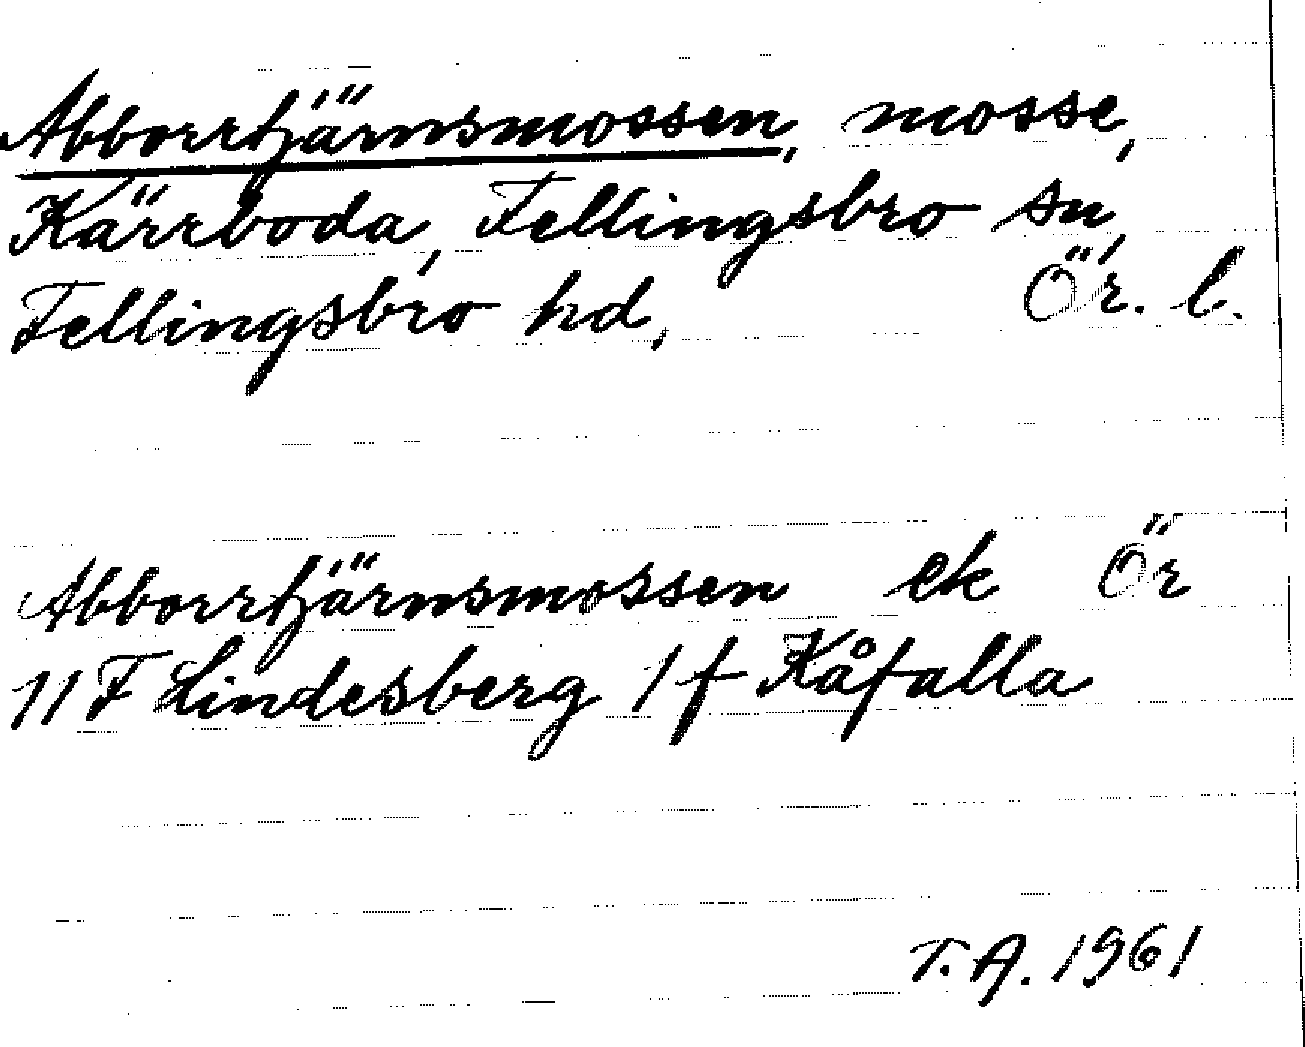 Abborrtjärnsmossen, mosse,
Kärrboda, Fellingsbro sn,
Fellingsbro hd, Ör. l.
Abborrtjärnsmossen ek Ör
11 F Lindesberg 1 f Kåfalla
T. A. 1961